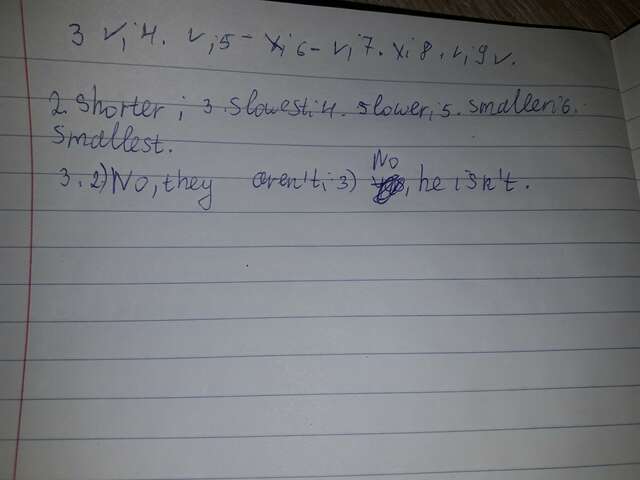 3 v; 4. v; 5 - x; 6 - v; 7. x; 8. v; 9 v.
2. Shorter; 3. Slowest; 4. slower; 5. smaller; 6.
smallest.
No
3. 2) No, they aren't; 3) , he isn't.